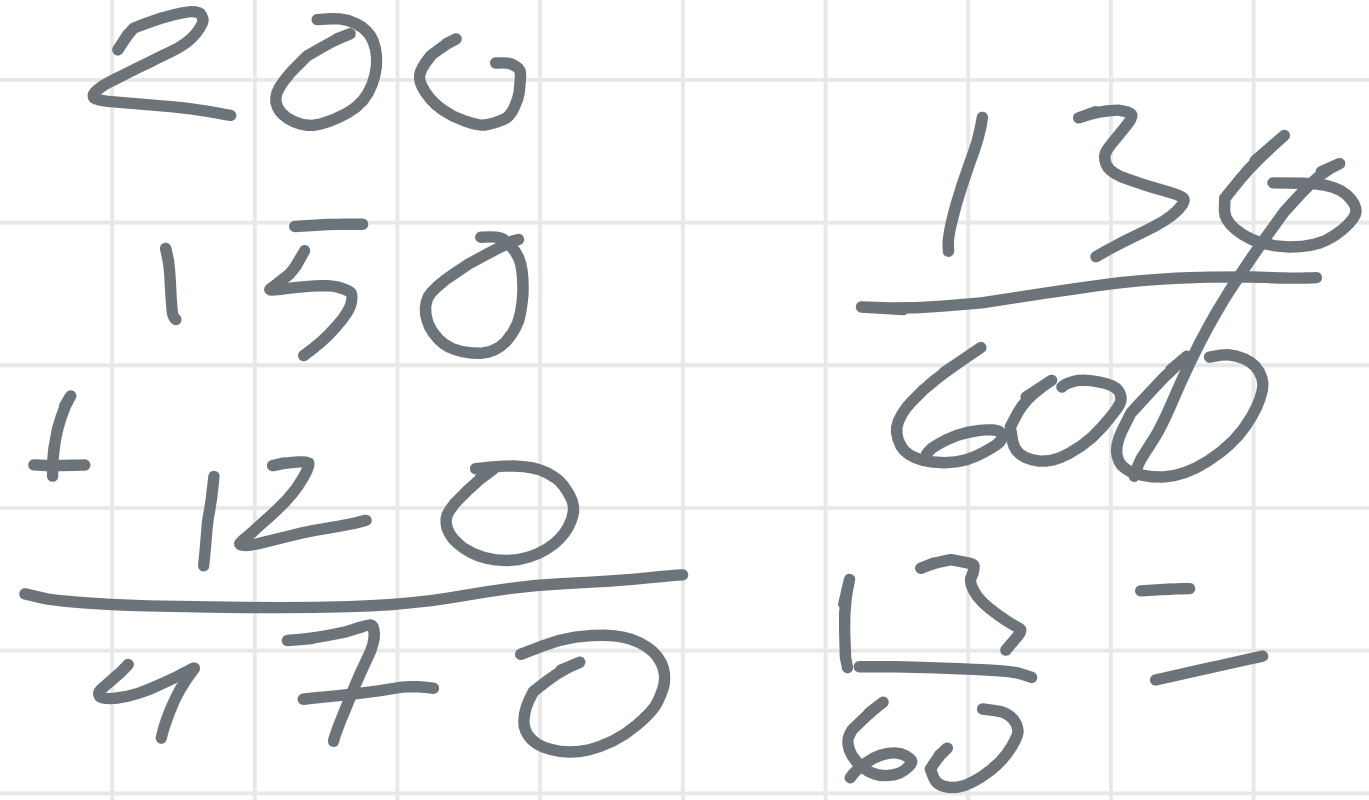 200
150
+ 120
470
130
600
13
60
=